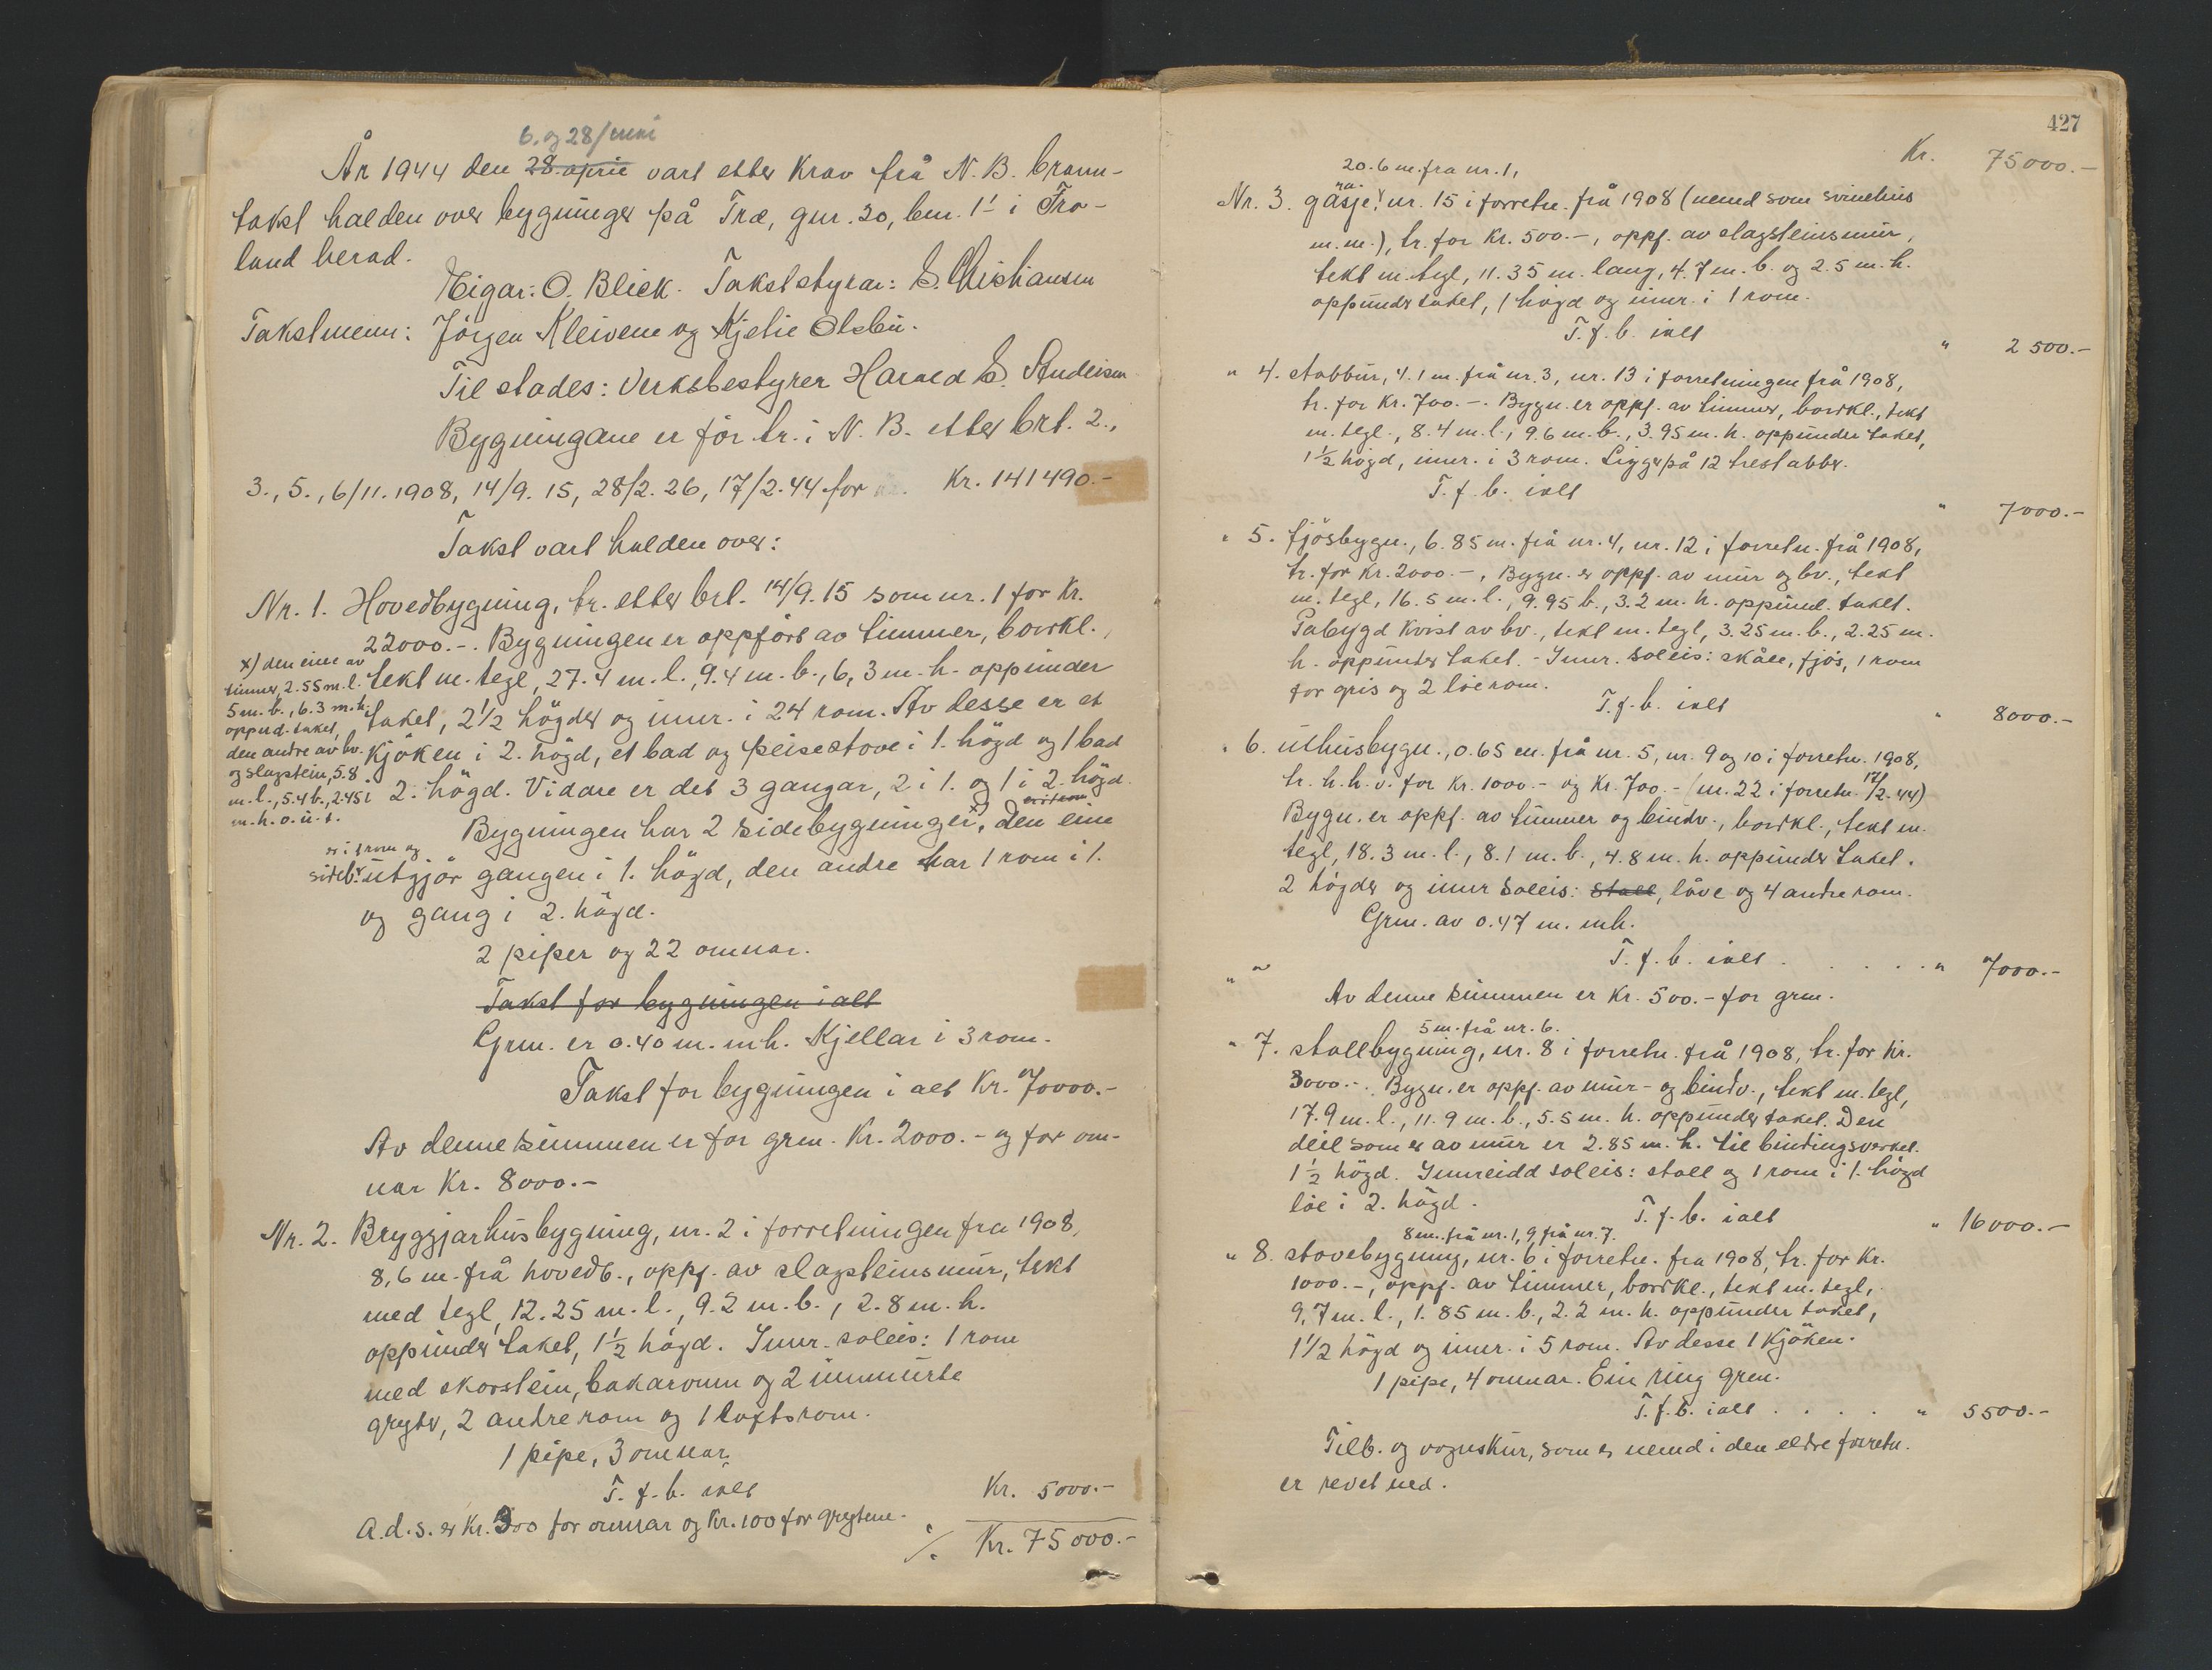 6. og 28/juni
År 1944 den 28. april vart etter krav frå N. B. brann-
takst halden over bygninger på Træ, gnr. 20, bnr. 1 i Tro-
land herad.
Eigar: O. Blick. Takststyrar: S. Christiansen
Takstmenn: Jörgen Kleivene og Kjetil Olsbu.
Til stades: Verksbestyrer Harald S. Andersen
Bygningane er för tr. i N. B. etter brt. 2.,
3., 5., 6/11. 1908, 14/9. 15, 28/2. 26, 17/2. 44 for Kr. 141490.-
Takst vart halden over:
Nr. 1. Hovedbygning, tr. etter brt. 14/9. 15 som nr. 1 for Kr.
22000.-. Bygningen er oppfört av timmer, bordkl.,
tekt m. tegl, 27.4 m. l., 9.4 m. b., 6,3 m. h. oppunder
taket, 2 1/2 högder og innr. i 24 rom. Av desse er et
kjöken i 2. högd, et bad og peisestove i 1. högd og 1 bad
2. högd. Vidare er det 3 gangar, 2 i 1. og 1 i 2. högd.
x) den eine av
timmer, 2.55 m. l.
5 m. b., 6.3 m. h.
oppnd. taket,
den andre av bv.
og slagstein, 5.8
m. l., 5.4 b., 2.45
m. h. o. u. t.
Bygningen har 2 sidebygninger, x) den eine
er i 1 rom og
sideb. utgjör gangen i 1. högd, den andre har 1 rom i 1.
og gang i 2. högd.
2 piper og 22 omnar.
Takst for bygningen i alt
Grm. er 0.40 m. mh. Kjellar i 3 rom.
Takst for bygningen i alt Kr. 70000.-
Av denne summen er for grm. Kr. 2000.- og for om-
nar Kr. 8000.-
Nr. 2. Bryggjarhusbygning, nr. 2 i forretningen fra 1908,
8,6 m. frå hovedb., oppf. av slagsteinsmur, tekt
med tegl, 12.25 m. l., 9.2 m. b., 2.8 m. h.
oppunder taket, 1 1/2 högd. Innr. soleis: 1 rom
med skorstein, bakaromn og 2 innmurte
gryter, 2 andre rom og 1 loftsrom.
1 pipe, 3 omnar.
T. f. b. ialt Kr. 5000.-
A. d. s. er Kr. 300 for omnar og Kr. 100 for grytene.
./. Kr. 75000.-
427
Kr. 75000.-
20.6 m. fra nr. 1,
Nr. 3. nr. 15 i forretn. frå 1908 (nemnd som svinehus
m. m.), tr. for Kr. 500.-, oppf. av slagsteinsmur,
tekt m. tegl, 11.35 m. lang, 4.7 m. b. og 2.5 m. h.
oppunder taket, 1 högd og innr. i 1 rom.
T. f. b. ialt " 2500.-
" 4. stabbur, 4.1 m. frå nr. 3, nr. 13 i forretningen frå 1908,
tr. for Kr. 700.-. Bygn. er oppf. av timmer, bordkl., tekt
m. tegl., 8.4 m. l., 9.6 m. b., 3.95 m. h. oppunder taket,
1 1/2 högd, innr. i 3 rom. Ligger på 12 trestabber.
T. f. b. ialt " 7000.-
" 5. fjösbygn., 6.85 m. frå nr. 4, nr. 12 i forretn. frå 1908,
tr. for Kr. 2000.-, Bygn. er oppf. av mur og bv., tekt
m. tegl, 16.5 m. l., 9.95 b., 3.2 m. h. oppund. taket.
Påbygd kvist av bv., tekt m. tegl, 3.25 m. b., 2.25 m.
h. oppunder taket. - Innr. soleis: skåle, fjös, 1 rom
for gris og 2 löerom.
T. f. b. ialt " 8000.-
" 6. uthusbygn., 0.65 m. frå nr. 5, nr. 9 og 10 i forretn. 1908,
tr. h. h. v. for Kr. 1000.- og Kr. 700.- (nr. 22 i forretn. 17/2. 44)
Bygn. er oppf. av timmer og bindv., bordkl., tekt m.
tegl, 18.3 m. l., 8.1 m. b., 4.8 m. h. oppunder taket.
2 högder og innr soleis: stall, löve og 4 andre rom.
Grm. av 0.47 m. mh.
T. f. b. ialt . . . . . " 7000.-
" "
Av denne summen er Kr. 500.- for grm.
5 m. frå nr. 6.
" 7. stallbygning, nr. 8 i forretn. frå 1908, tr. for Kr.
3000.-. Bygn. er oppf. av mur- og bindv., tekt m. tegl,
17.9 m. l., 11.9 m. b., 5.5 m. h. oppunder taket. Den
deil som er av mur er 2.85 m. h. til bindingsverket.
1 1/2 högd. Innreidd soleis: stall og 1 rom i 1. högd
löe i 2. högd.
T. f. b. ialt " 16000.-
8 m. frå nr. 1, 9 frå nr. 7.
" 8. stovebygning, nr. 6 i forretn. fra 1908, tr. for Kr.
1000.-, oppf. av timmer, bordkl., tekt m. tegl,
9,7 m. l., 1.85 m. b., 2.2 m. h. oppunder taket,
1 1/2 högd og innr. i 5 rom. Av desse 1 kjöken.
1 pipe, 4 omnar. Ein ring grm.
T. f. b. ialt . . . . " 5500.-
Tilb. og vognskur, som er nemnd i den eldre forretn.
er revet ned.